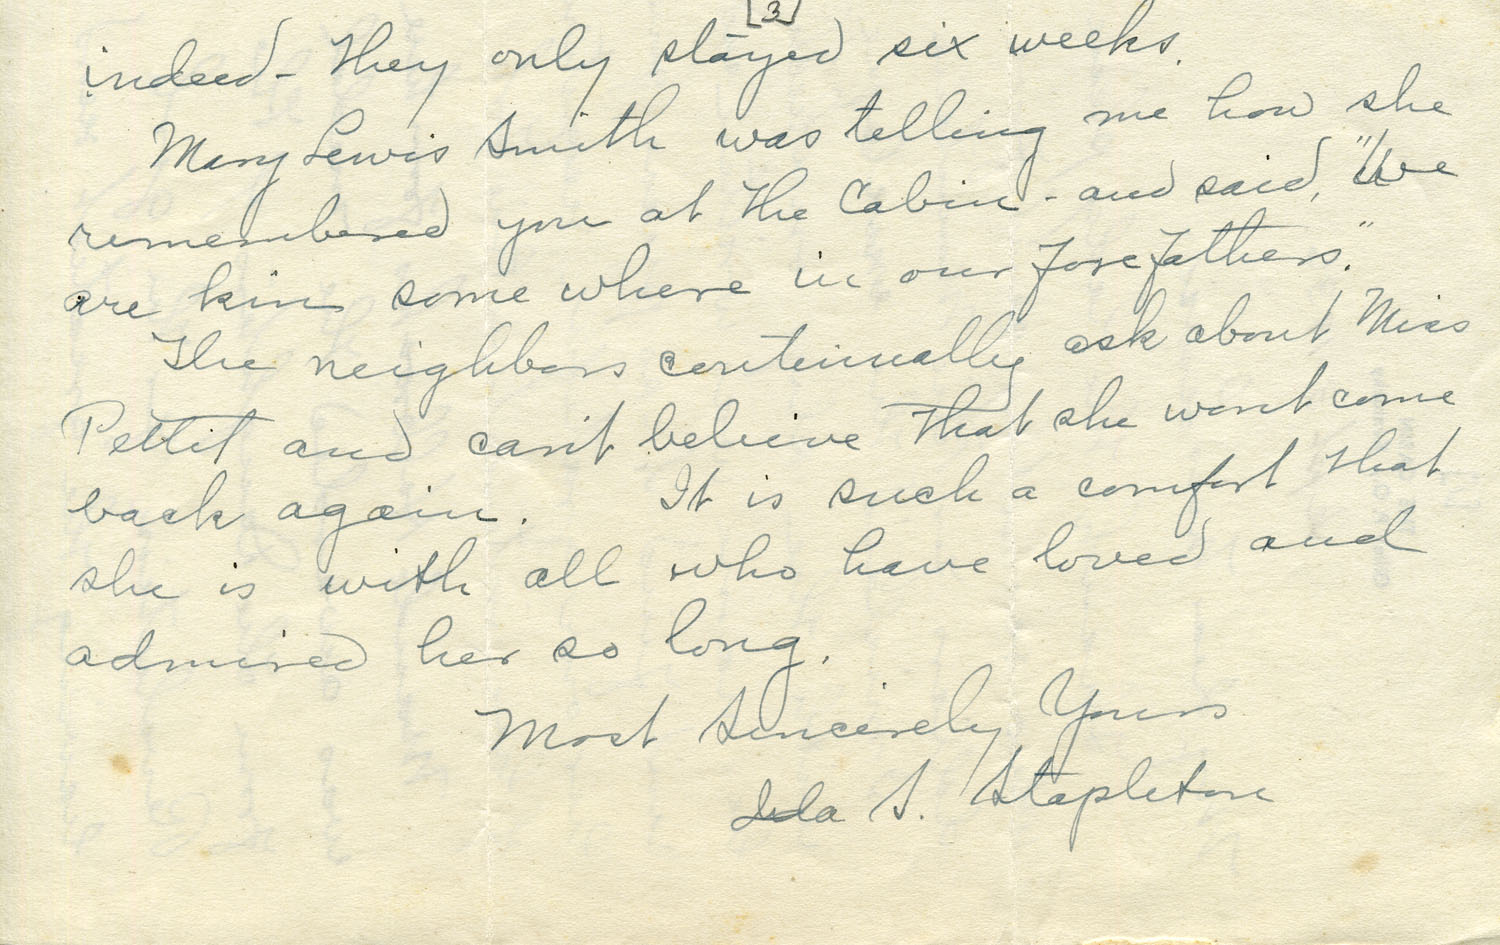 [3]
indeed - They only stayed six weeks.
Mary Lewis Smith was telling me how she
remembered you at the Cabin - and said, "We
are kin some where in our Forefathers."
The neighbors continually ask about Miss
Pettit and can't believe that she wont come
back again. It is such a comfort that
she is with all who have loved and
admired her so long.
Most Sincerely Yours
Ida S. Stapleton